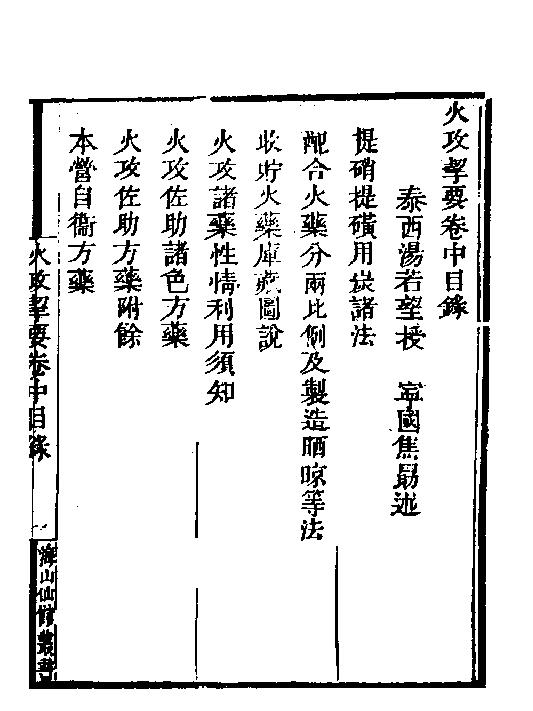 火攻挈要卷中目錄
泰西湯若望授　寧國焦勗述
提硝提磺用炭諸法
配合火藥分兩比例及製造晒晾等法
收貯火藥庫藏圖說
火攻諸藥性情利用須知
火攻佐助諸色方藥
火攻佐助方藥附餘
本營自衞方藥
火攻挈要卷中目錄
一
海山仙館叢書